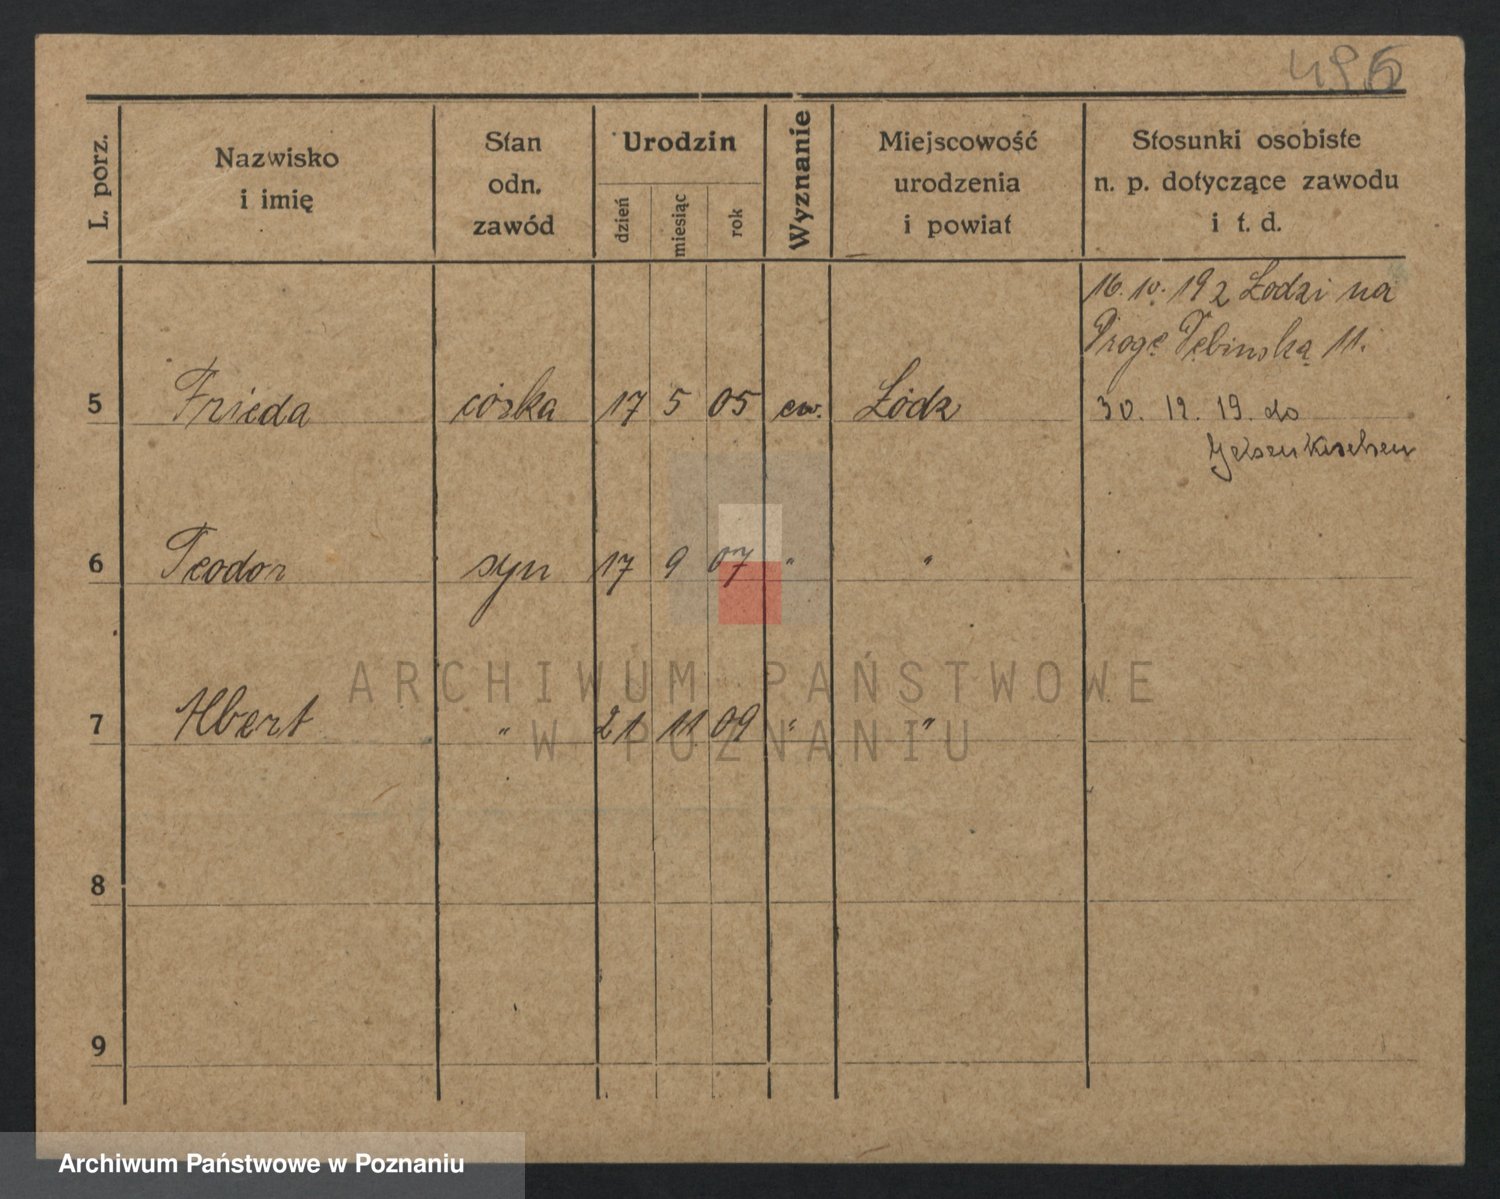 496
L. porz.
Nazwisko
i imię
Stan
odn.
zawód
Urodzin
dzień
miesiąc
rok
Wyznanie
Miejscowość
urodzenia
i powiat
Stosunki osobiste
n. p. dotyczące zawodu
i t. d.
16. 10. 19 z Łodzi na
11.
5 Frieda córka 17 5 05 ew. Łódz 30. 12. 19. do
Gelsenkirchen
6 Teodor syn 17 9 07 " "
ARCHIWUM PAŃSTWOWE
W POZNANIU
7 Albert " 21 11 09 " "
8
9
Archiwum Państwowe w Poznaniu